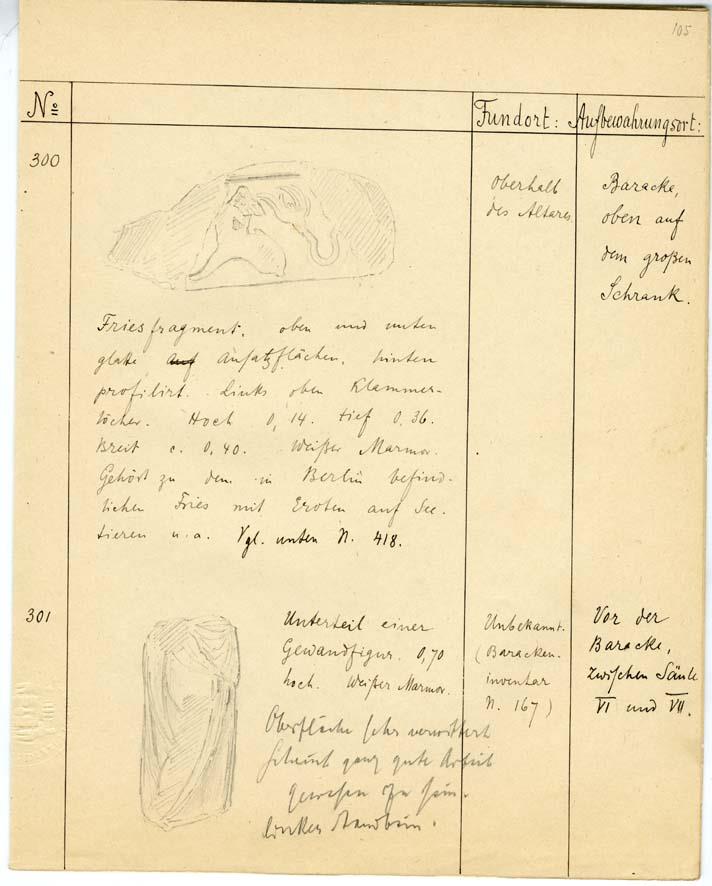 105
No
Fundort: Aufbewahrungsort:
300
oberhalb
des Altares
Baracke,
oben auf
dem großen
Schrank.
Friesfragment, oben und unten
glatte auf Ansatzflächen, hinten
profilirt. Links oben Klammer-
löcher. Hoch 0,14. tief 0,36.
Breit c. 0,40. Weißer Marmor.
Gehört zu dem in Berlin befind-
lichen Fries mit Eroten auf See-
tieren u.a. Vgl. unten N. 418.
301
Unterteil einer
Gewandfigur. 0,70
hoch. Weißer Marmor.
Oberfläche sehr verwittert
scheint ganz gute Arbeit
gewesen zu sein.
linkes Standbein.
Unbekannt.
(Baracken-
inventar
N. 167)
Vor der
Baracke,
zwischen Säule
VI und VII.